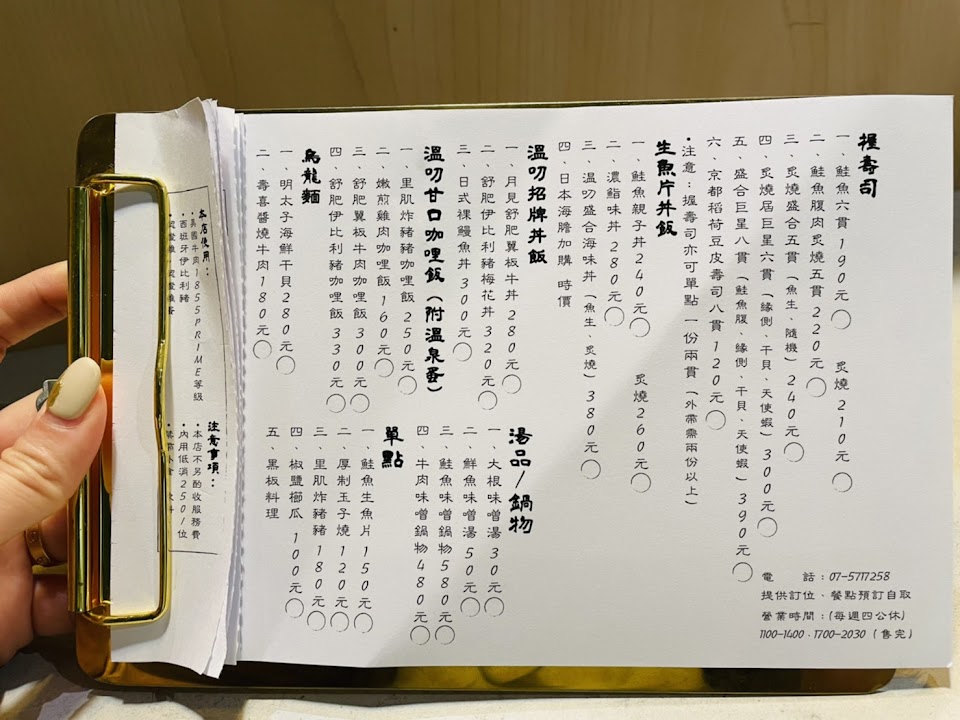 握壽司
一、鮭魚六貫 190元 炙燒 210元
二、鮭魚腹肉炙燒五貫 220元
三、炙燒盛合五貫（魚生、隨機）240元
四、炙燒居巨星六貫（緣側、干貝、天使蝦）300元
五、盛合巨星八貫（鮭魚腹、緣側、干貝、天使蝦）390元
六、京都稻荷豆皮壽司八貫 120元
•注意：握壽司亦可單點 一份兩貫（外帶需兩份以上）
生魚片丼飯
一、鮭魚親子丼 240元 炙燒 260元
二、濃鮨味丼 280元
三、溫叨盛合海味丼（魚生、炙燒）380元
四、日本海膽加購 時價
溫叨招牌丼飯
一、月見舒肥翼板牛丼 280元
二、舒肥伊比利豬梅花丼 320元
三、日式裸鰻魚丼 300元
溫叨甘口咖哩飯（附溫泉蛋）
一、里肌炸豬豬咖哩飯 250元
二、嫩煎雞肉咖哩飯 160元
三、舒肥翼板牛肉咖哩飯 300元
四、舒肥伊比利豬咖哩飯 330元
烏龍麵
一、明太子海鮮干貝 280元
二、壽喜醬燒牛肉 180元
湯品/鍋物
一、大根味噌湯 30元
二、鮮魚味噌湯 50元
三、鮭魚味噌鍋物 580元
四、牛肉味噌鍋物 480元
單點
一、鮭魚生魚片 150元
二、厚制玉子燒 120元
三、里肌炸豬豬 180元
四、椒鹽櫛瓜 100元
五、黑板料理
電 話：07-5717258
提供訂位、餐點預訂自取
營業時間：(每週四公休)
1100-1400．1700-2030（售完）
本店使用：
•美國牛肉1855PRIME等級
•西班牙伊比利豬
注意事項：
•本店不另酌收服務費
•內用低消250/位